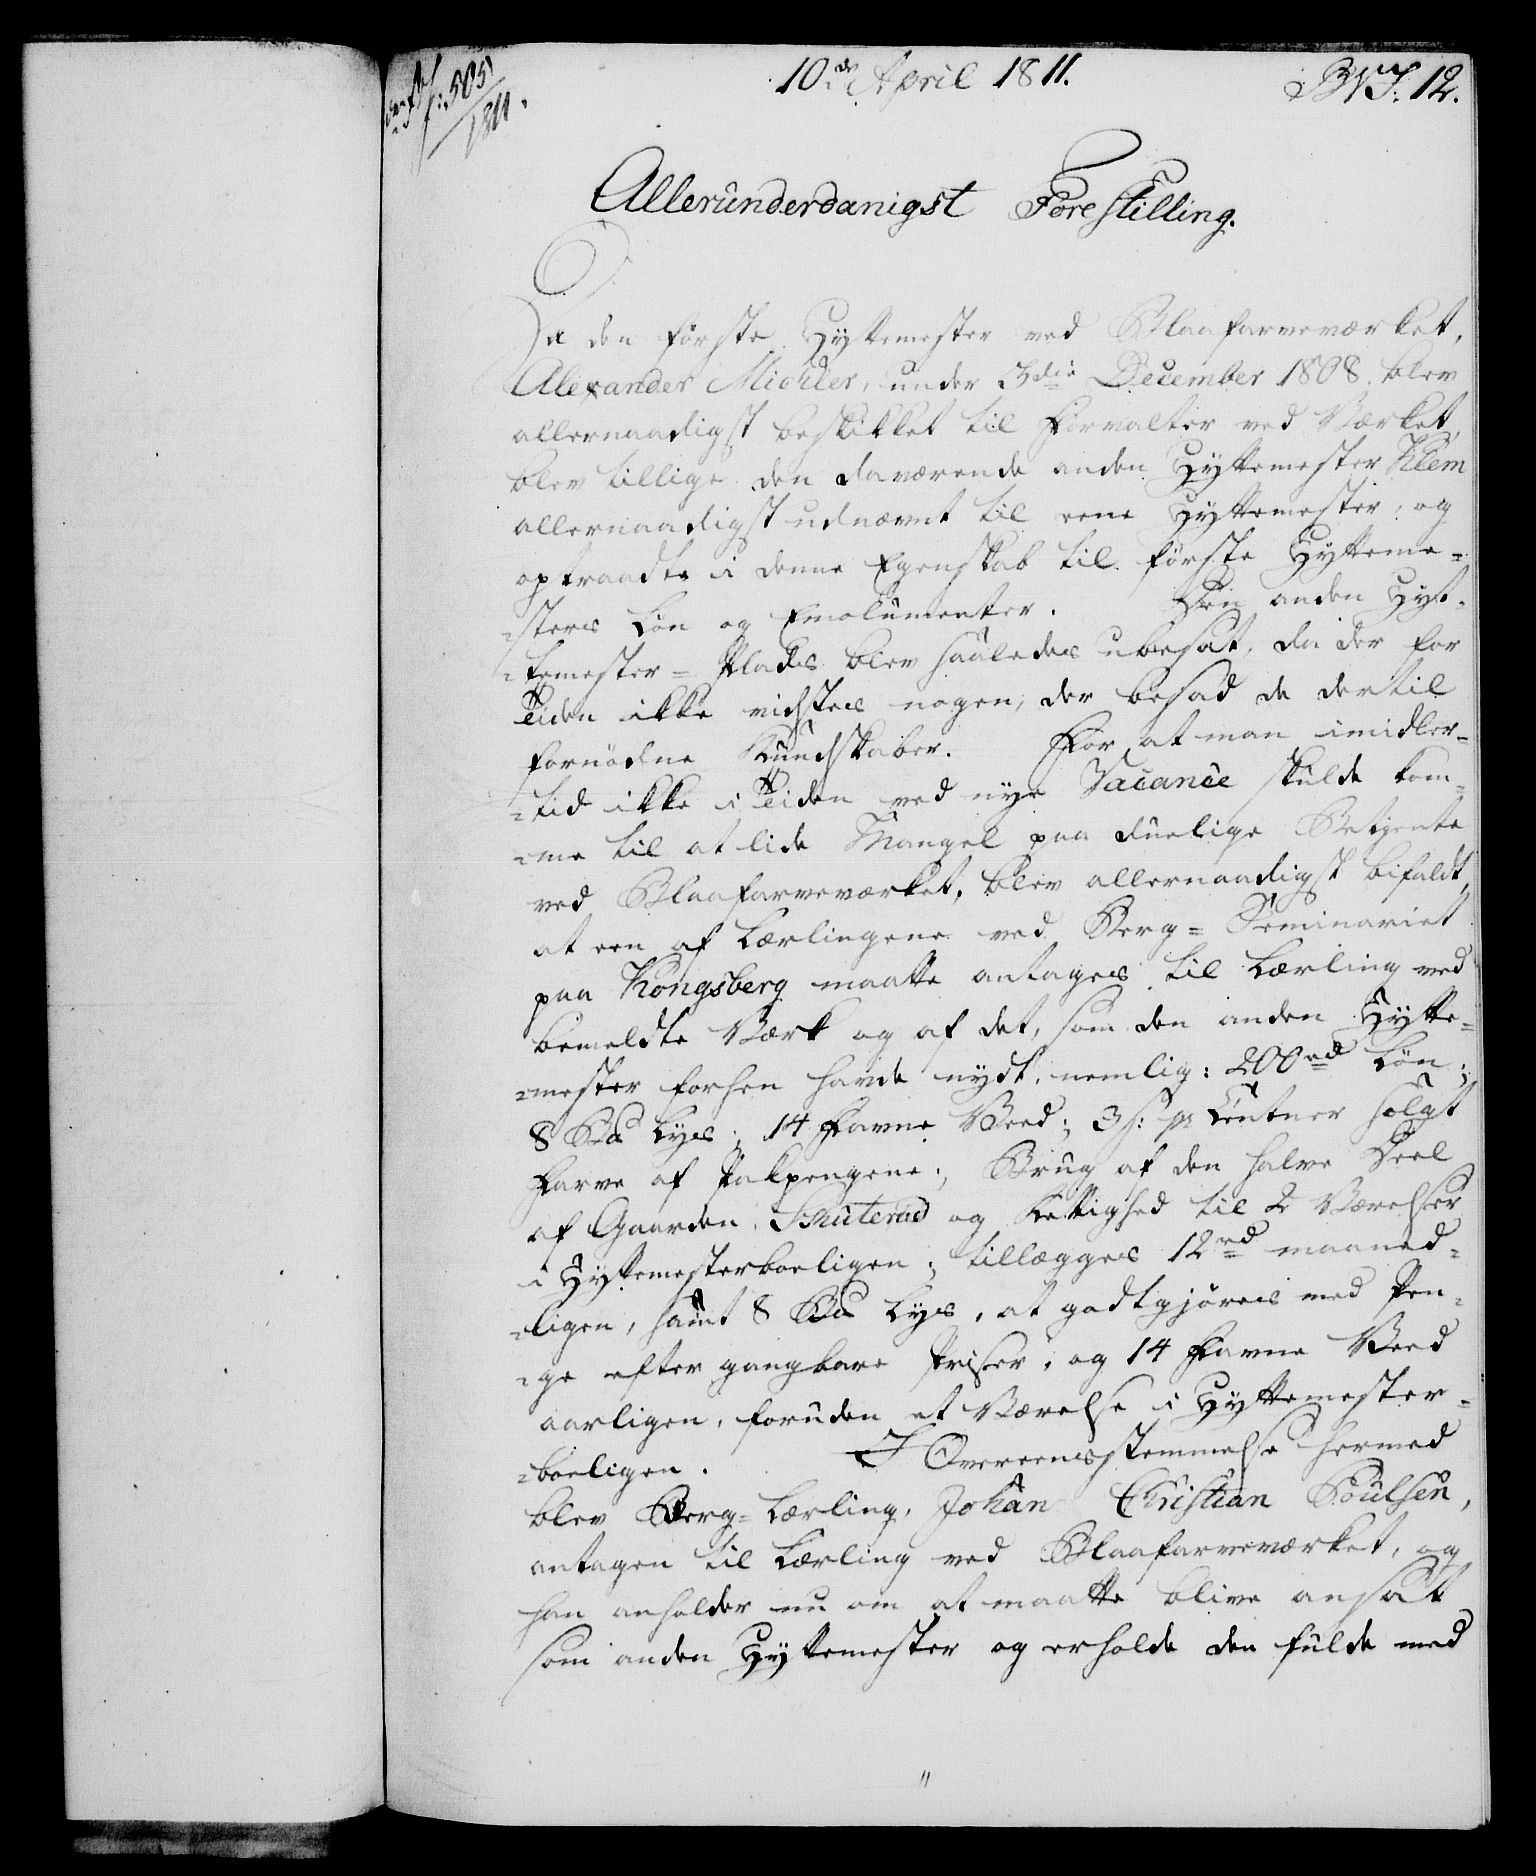 f: 505
1811.
10de April 1811.
No: 12.
Allerunderdanigst Forestilling.
Da den første Hyttemester ved Blaafarveværket,
Alexander Michler, under 3die December 1808. blev
allernaadigst beskikket til Forvalter ved Værket,
blev tillige den daværende anden Hyttemester Klem
allernaadigst udnævnt til eene Hyttemester, og
optraadte i denne Egenskab til første Hytteme=
=sters Løn og Emolumenter. Den anden Hyt=
=temester=Plads blev saaledes ubesat, da der for
Tiden ikke vidstes nogen, der besad de dertil
fornødne Kundskaber. For at man imidler=
=tid ikke i Tiden ved nye Vacance skulde kom=
=me til at lide Mangel paa duelige Betjente
ved Blaafarveværket, blev allernaadigst bifaldt,
at een af Lærlingene ved Berg=Seminariet
paa Kongsberg maatte antages til Lærling ved
bemeldte Værk og af det, som den anden Hytte=
=mester forhen havde nydt, nemlig: 200rd Løn;
8 Lyes; 14 Favne Veed; 3 s: pr Centner solgt
Farve af Pakpengene; Brug af den halve Deel
af Gaarden Skuterud og Rettighed til 2 Værelser
i Hyttemesterboeligen; tillægges 12rd maaned=
=ligen, samt 8 Lyes, at godtgjøres med Pen=
=ge efter gangbare Priser, og 14 Favne Veed
aarligen, foruden et Værelse i Hyttemester=
=boeligen. I Overeensstemmelse hermed
blev Berg=Lærling, Johan Christian Poulsen,
antagen til Lærling ved Blaafarveværket, og
han anholder nu om at maatte blive ansat
som anden Hyttemester og erholde den fulde med